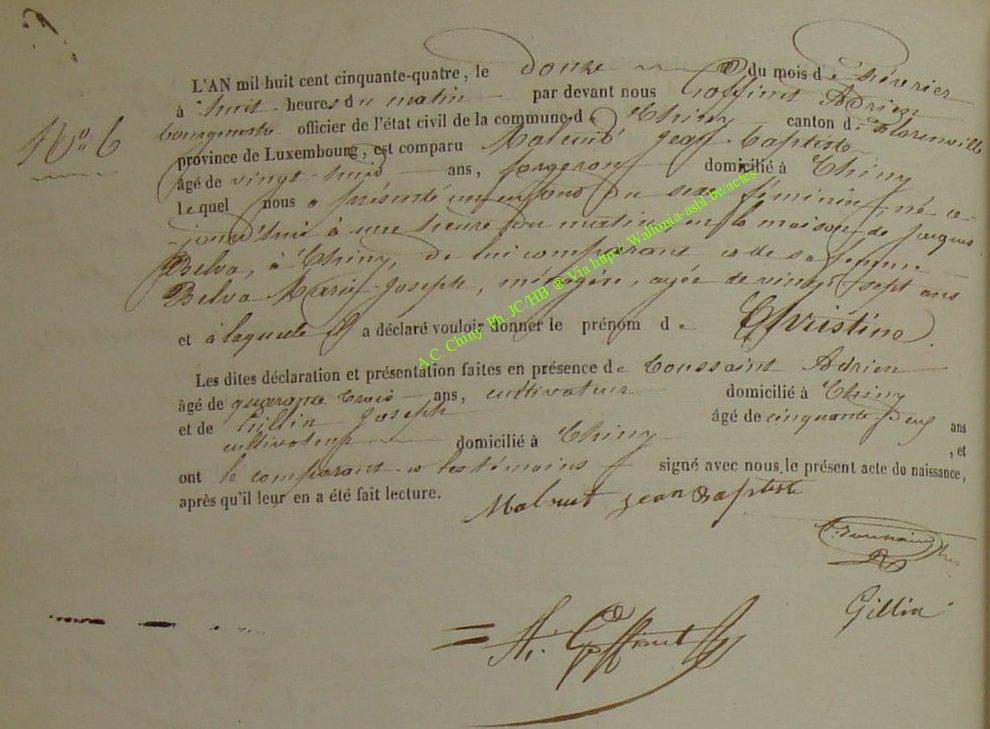 L'AN mil huit cent cinquante-quatre, le douze du mois de février
à huit heures du matin par devant nous Goffinet Adrien
N° 6
bourgmestre officier de l'état civil de la commune de Chiny canton de Florenville
province de Luxembourg, est comparu Jean Baptiste
âgé de vingt huit ans, forgeron domicilié à Chiny
lequel nous a présenté un enfant du sexe féminin, né ce
jourd'hui à une heure du matin en la maison de Jacques
Belva, à Chiny, de lui comparant et de sa femme
Belva Marie Joseph, ménagère, agée de vingt sept ans
et à laquelle il a déclaré vouloir donner le prénom de Christine.
Les dites déclaration et présentation faites en présence de Toussaint Adrien
âgé de quarante trois ans, cultivateur domicilié à Chiny
et de Gillin Joseph âgé de cinquante deux ans
cultivateur domicilié à Chiny , et
ont le comparant et les témoins signé avec nous le présent acte de naissance,
après qu'il leur en a été fait lecture.
Jean Baptiste
Gillin
A. Goffinet
A.C. Chiny Ph. JC/HB ® Via http:// Wallonia-asbl.be/actes